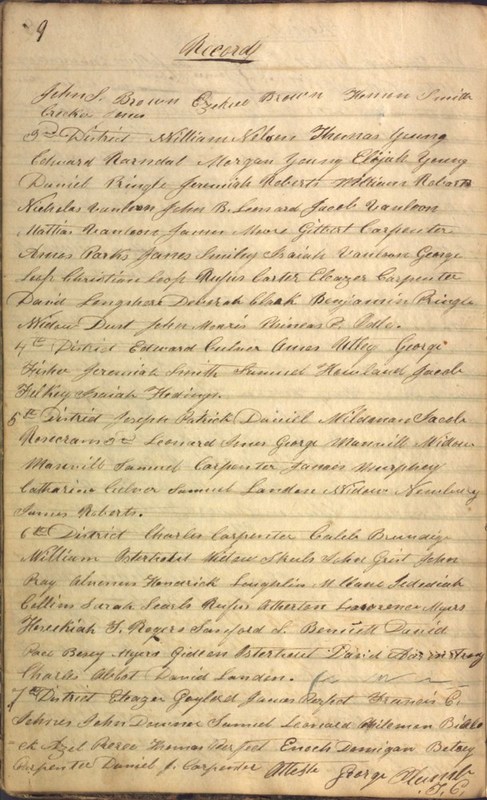 9
Record
John S. Brown Ezekiel Brown Homan Smith
3rd District William Nelson Thomas Young
Edward Ransdal Morgan Young Elijah Young
Daniel Pringle Jeremiah Roberts William Roberts
Nicholas Vanloon John B. Leonard Jacob Vanloon
Mattias Vanloon James More Gilbert Carpenter
Amos Parks James Smiley Isaiah Vanloon George
Christian Rufus Carter Eleazer Carpenter
David Longshore Deborah Benjamin Pringle
Widow Durt John Phineas
4th District Edward Culver Utley George
Fisher Jeremiah Smith Samuel Howland Jacob
Isaiah
5th District Joseph Patrick Daniel Jacob
Rosecrans 2nd Leonard George Manvill Widow
Manvill Samuel Carpenter James Murphey
Catharine Culver Samuel Landon Widow Newbury
James Roberts.
6th District Charles Carpenter Caleb Brundige
William Osterhout Widow John Grist John
Ray Hendrick Loughlin McClane Jedediah
Collins Sarah Searls Rufus Atherton Lawrence Myers
Hezekiah F. Rogers Sanford S. Bennett David
Pace Betsy Myers Gideon Osterhout David Armstrong
Charles Abbot David Landon.
7th District Eleazer Gaylord James Perfect Francis C.
John Downer Samuel Leonard Phileman
Azel Thomas Perfect Enoch Betsey
Carpenter Daniel J. Carpenter Atteste George
T. C.